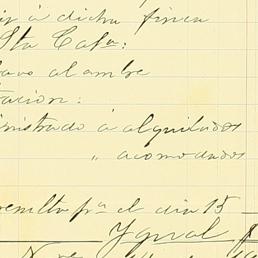 á dicha finca
Sta Catª:
alambre
tacion:
inistrado á alquilados
" acomodados
resulta pª el dia 15
Ygual